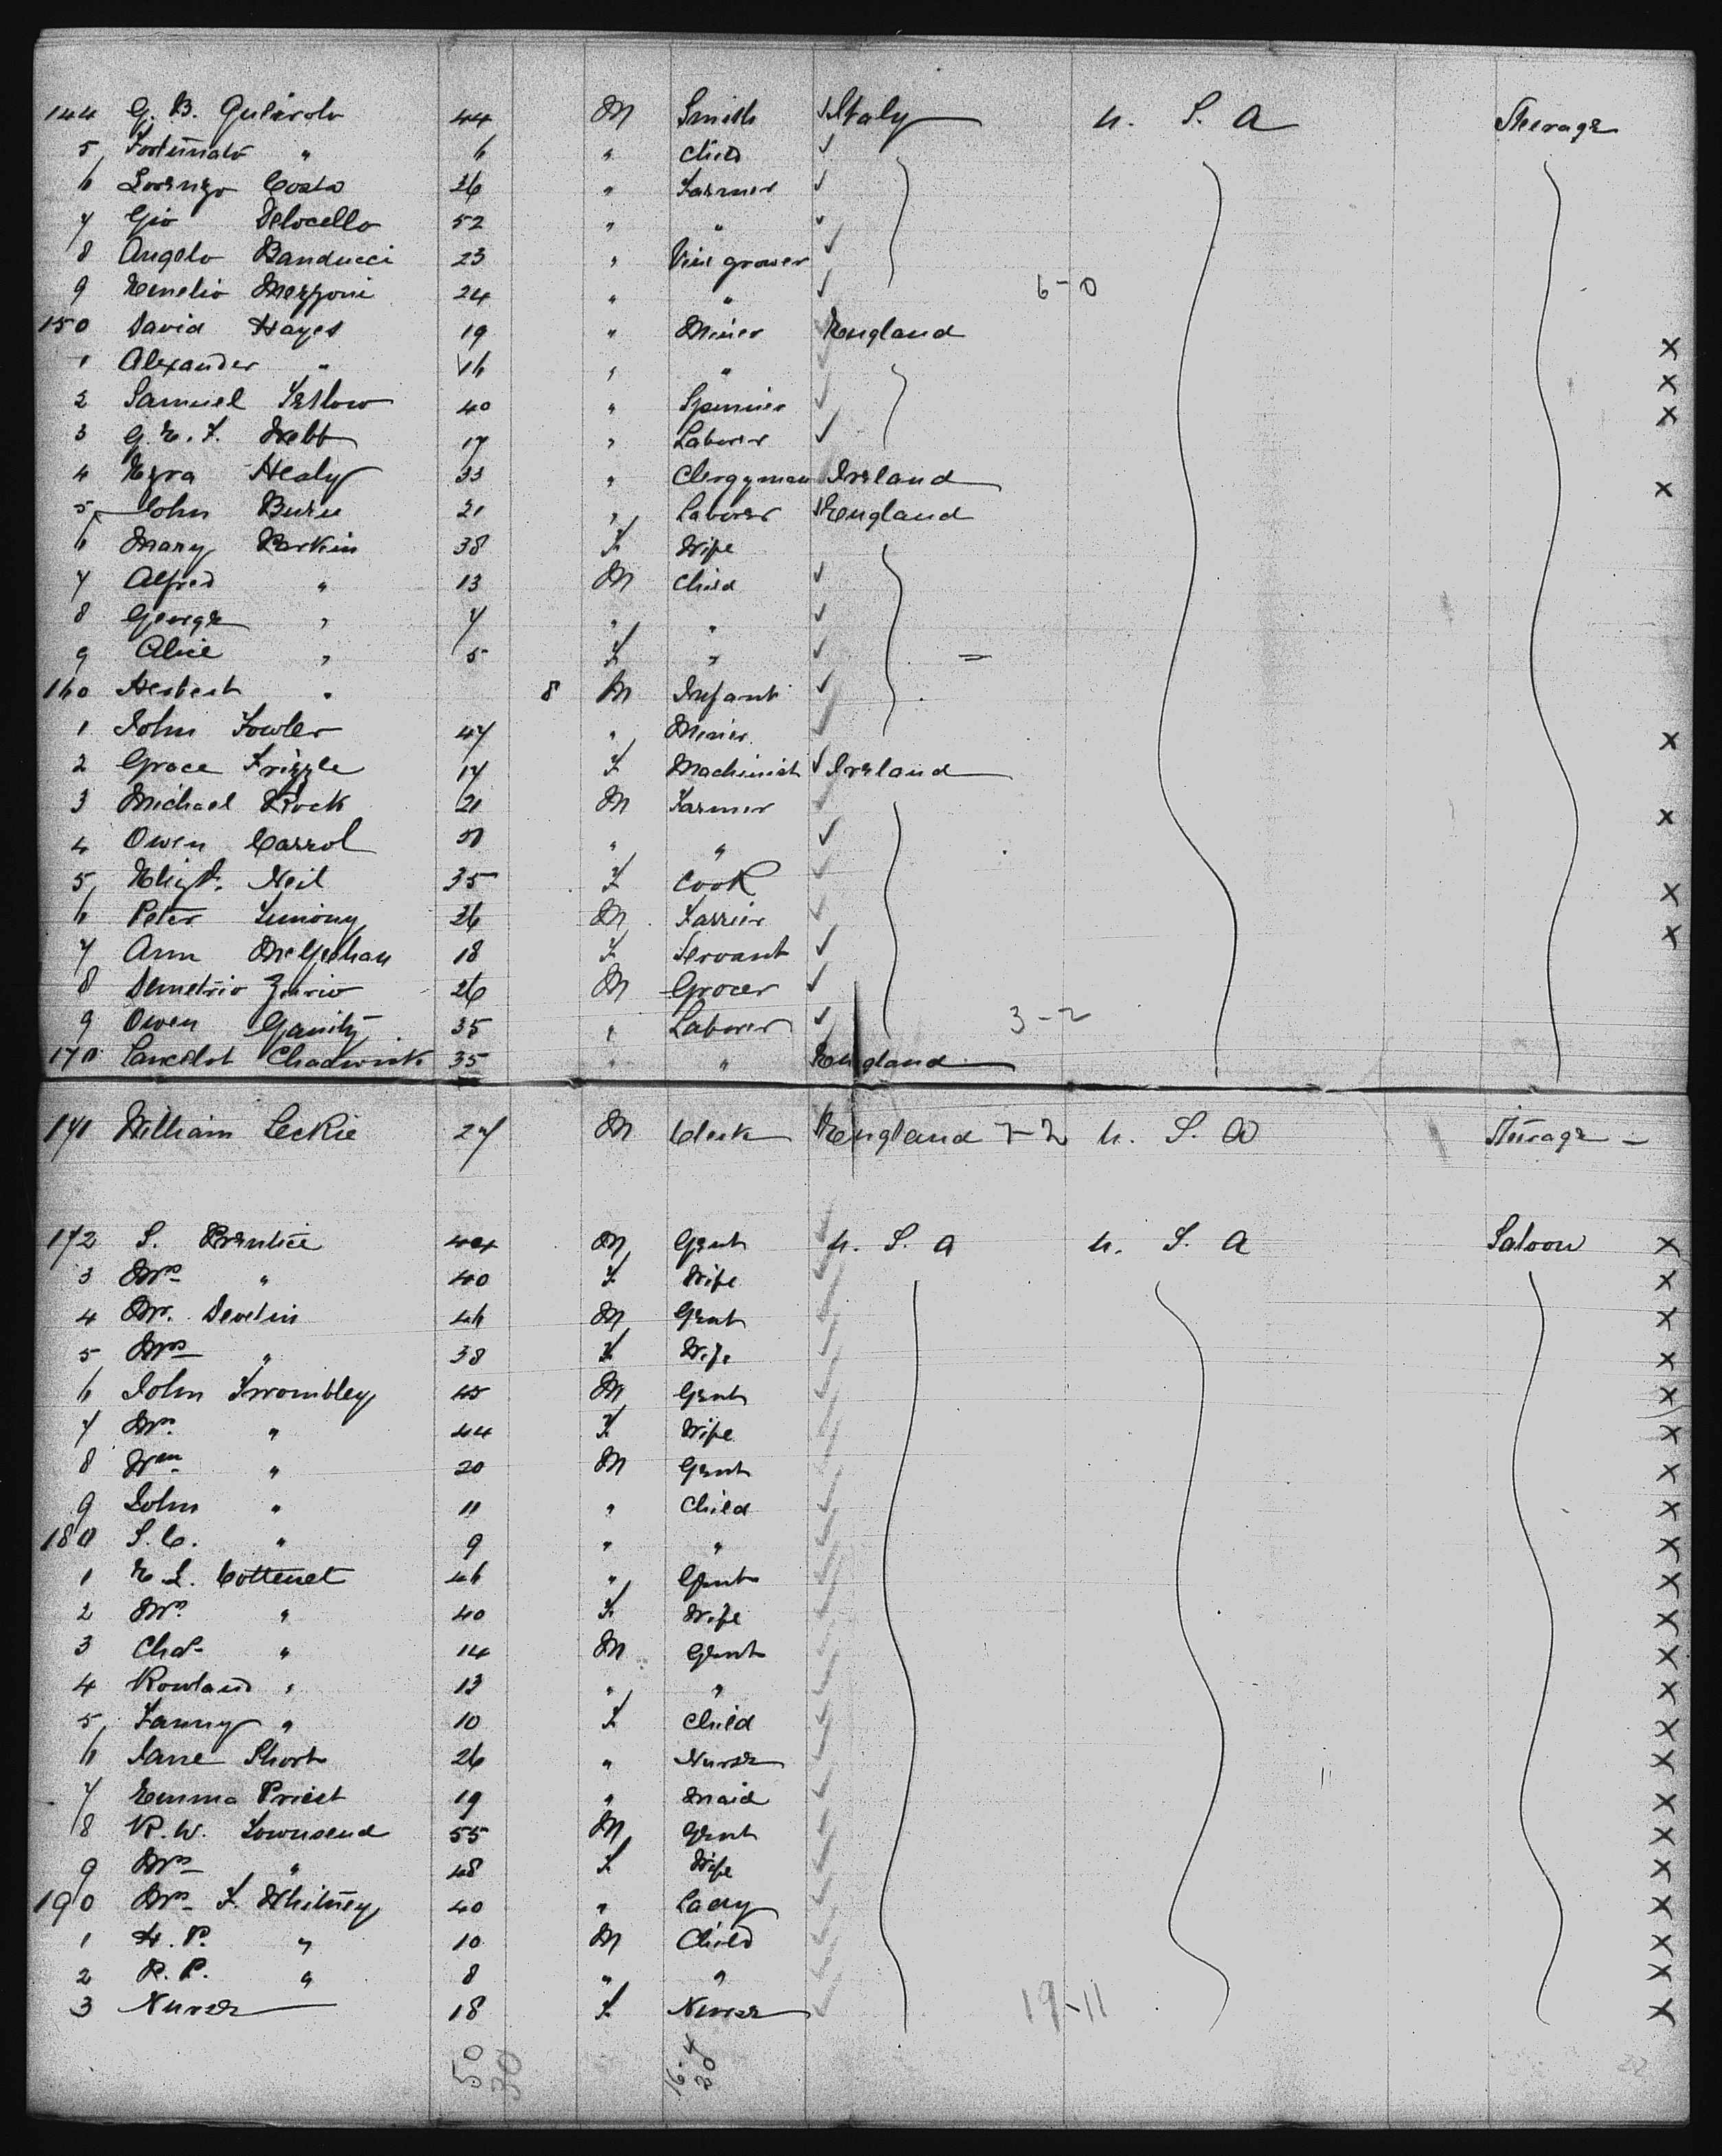 144 G. B. Queirolo 44 M Smith Italy U. S. A Steerage
5 Fortunato " 6 " Child
6 Lorenzo Costa 26 " Farmer
7 Gio Delocello 52 " "
8 Angelo Banducci 23 " Vine grower
9 Emelio Mezzoni 24 " " 6-0
150 David Hayes 19 " Miner England
1 Alexander " 16 " " X
2 Samuel Teslow 40 " Spinner X
3 G. E. F. Webb 17 " Laborer X
4 Ezra Healy 33 " Clergyman Ireland
5 John Burn 21 " Laborer England X
6 Mary Parkin 38 F. Wife
7 Alfred " 13 M Child
8 George " 7 " "
9 Alice " 5 F. "
160 Herbert " 8 M Infant
1 John Fowler 47 " Miner X
2 Grace Frizzle 17 F. Machinist Ireland
3 Michael Rock 21 M Farmer X
4 Owen Carrol " "
5 Elizth. Neil 35 F. Cook X
6 Peter 26 M Farrier X
7 Ann McGeehan 18 F. Servant
8 Demetrio 26 M Grocer
9 Owen Ganity 35 " Laborer 3-2
170 Lancelot Chadwick 35 " " England
171 William Leckie 27 M Clerk England 7-2 U. S. A Steerage
172 S. Prentice 44 M Gent U. S. A U. S. A Saloon X
3 Mrs " 40 F. Wife X
4 Mr. Develin 46 M Gent X
5 Mrs " 38 F. Wife X
6 John Twombley 45 M Gent X
7 Mrs " 44 F. Wife X
8 Wm " 20 M Gent X
9 John " 11 " Child X
180 S. C. " 9 " " X
1 E L. Cottenet 46 " Gent X
2 Mrs " 40 F. Wife X
3 Chas " 14 M Gent X
4 Rowland " 13 " " X
5 Fanny " 10 F. Child X
6 Jane Short 26 " Nurse X
7 Emma Priest 19 " Maid X
8 R. W. Townsend 55 M Gent X
9 Mrs " 48 F. Wife X
190 Mrs F. Whitney 40 " Lady X
1 H. P. " 10 M Child X
2 P. P. " 8 " " X
3 Nurse 18 F. Nurse 19-11 X
50 30 16-4 20